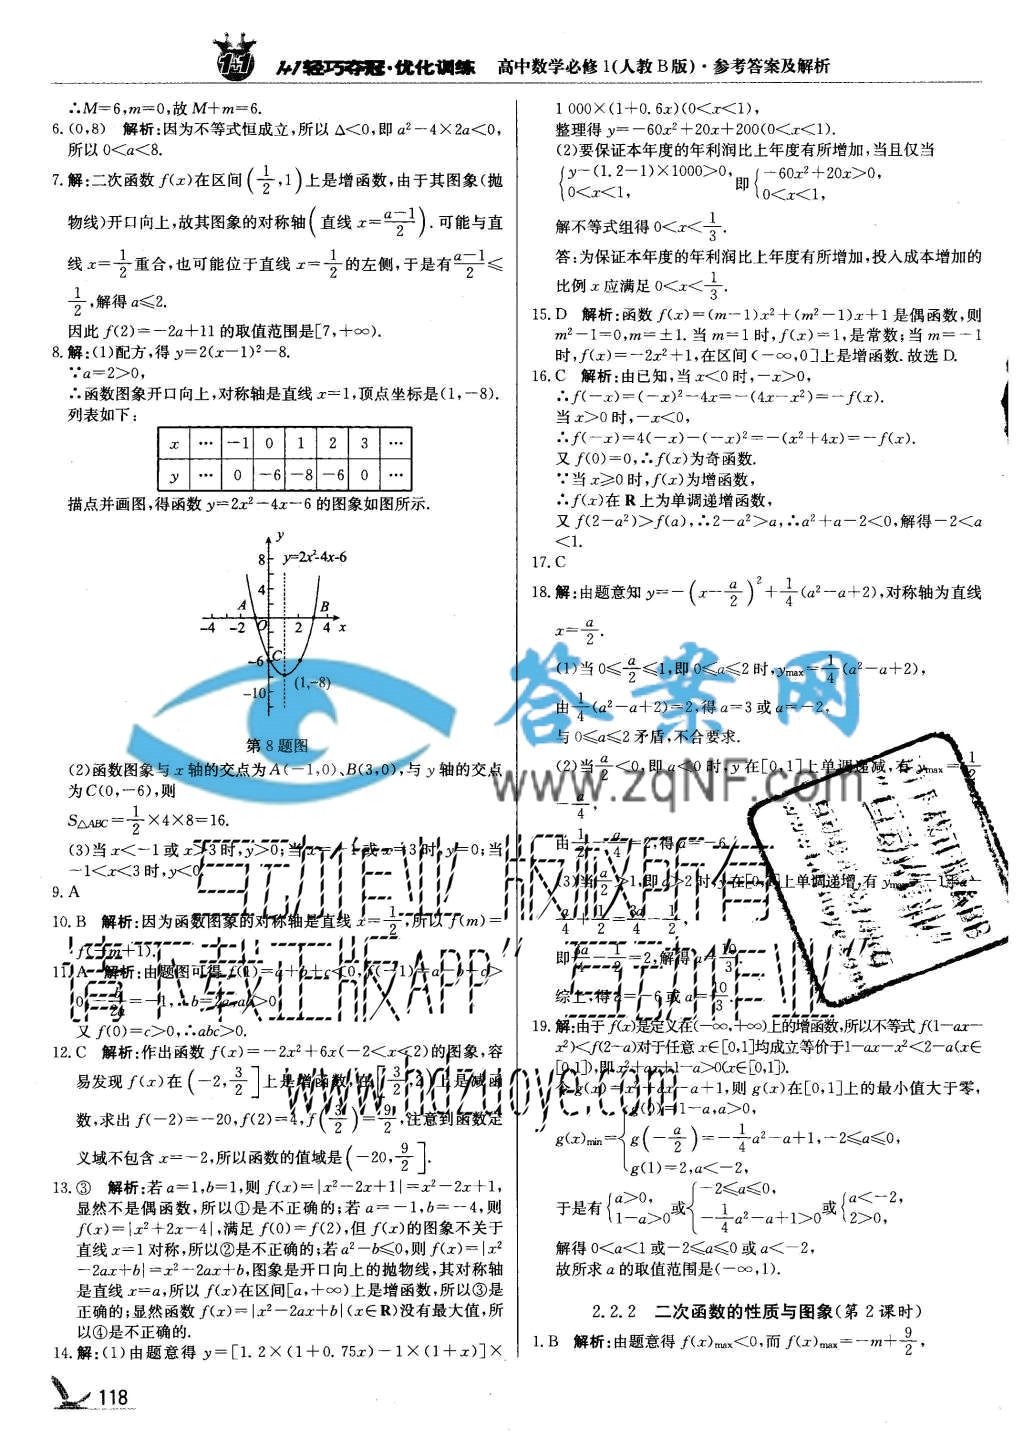 1+1轻巧夺冠·优化训练 高中数学必修1(人教B版)·参考答案及解析
∴M=6,m=0,故M+m=6.
6.(0,8) 解析:因为不等式恒成立,所以Δ<0,即a²-4×2a<0,
所以0<a<8.
7.解:二次函数f(x)在区间(1/2,1)上是增函数,由于其图象(抛
物线)开口向上,故其图象的对称轴(直线x=(a-1)/2).可能与直
线x=1/2重合,也可能位于直线x=1/2的左侧,于是有(a-1)/2≤
1/2,解得a≤2.
因此f(2)=-2a+11的取值范围是[7,+∞).
8.解:(1)配方,得y=2(x-1)²-8.
∵a=2>0,
∴函数图象开口向上,对称轴是直线x=1,顶点坐标是(1,-8).
列表如下:
x … -1 0 1 2 3 …
y … 0 -6 -8 -6 0 …
描点并画图,得函数y=2x²-4x-6的图象如图所示.
y
8 y=2x²-4x-6
4
A B
-4 -2 O 2 4 x
-6 C
(1,-8)
-10
第8题图
(2)函数图象与x轴的交点为A(-1,0)、B(3,0),与y轴的交点
为C(0,-6),则
S△ABC=1/2×4×8=16.
(3)当x<-1或x>3时,y>0;当x=-1或x=3时,y=0;当
-1<x<3时,y<0.
9.A
10.B 解析:因为函数图象的对称轴是直线x=1/2,所以f(m)=
f(-m+1).
11.A 解析:由题图可得f(1)=a+b+c<0,f(-1)=a-b+c>
0,-b/2a=-1,∴b=2a,a>0
又f(0)=c>0,∴abc>0.
12.C 解析:作出函数f(x)=-2x²+6x(-2<x≤2)的图象,容
易发现f(x)在(-2,3/2]上是增函数,在[3/2,2)上是减函
数,求出f(-2)=-20,f(2)=4,f(3/2)=9/2,注意到函数定
义域不包含x=-2,所以函数的值域是(-20,9/2].
13.③ 解析:若a=1,b=1,则f(x)=|x²-2x+1|=x²-2x+1,
显然不是偶函数,所以①是不正确的;若a=-1,b=-4,则
f(x)=|x²+2x-4|,满足f(0)=f(2),但f(x)的图象不关于
直线x=1对称,所以②是不正确的;若a²-b≤0,则f(x)=|x²
-2ax+b|=x²-2ax+b,图象是开口向上的抛物线,其对称轴
是直线x=a,所以f(x)在区间[a,+∞)上是增函数,所以③是
正确的;显然函数f(x)=|x²-2ax+b|(x∈R)没有最大值,所
以④是不正确的.
14.解:(1)由题意得y=[1.2×(1+0.75x)-1×(1+x)]×
118
1 000×(1+0.6x)(0<x<1),
整理得y=-60x²+20x+200(0<x<1).
(2)要保证本年度的年利润比上年度有所增加,当且仅当
{y-(1.2-1)×1000>0, 0<x<1, 即{-60x²+20x>0, 0<x<1,
解不等式组得0<x<1/3.
答:为保证本年度的年利润比上年度有所增加,投入成本增加的
比例x应满足0<x<1/3.
15.D 解析:函数f(x)=(m-1)x²+(m²-1)x+1是偶函数,则
m²-1=0,m=±1.当m=1时,f(x)=1,是常数;当m=-1
时,f(x)=-2x²+1,在区间(-∞,0]上是增函数.故选D.
16.C 解析:由已知,当x<0时,-x>0,
∴f(-x)=(-x)²-4x=-(4x-x²)=-f(x).
当x>0时,-x<0,
∴f(-x)=4(-x)-(-x)²=-(x²+4x)=-f(x).
又f(0)=0,∴f(x)为奇函数.
∵当x≥0时,f(x)为增函数,
∴f(x)在R上为单调递增函数,
又f(2-a²)>f(a),∴2-a²>a,∴a²+a-2<0,解得-2<a
<1.
17.C
18.解:由题意知y=-(x-a/2)²+1/4(a²-a+2),对称轴为直线
x=a/2.
(1)当0≤a/2≤1,即0≤a≤2时,ymax=1/4(a²-a+2),
由1/4(a²-a+2)=2,得a=3或a=-2,
与0≤a≤2矛盾,不合要求.
(2)当a/2<0,即a<0时,y在[0,1]上单调递减,有ymax=1/2
-a/4,
由1/2-a/4=2,得a=-6.
(3)当a/2>1,即a>2时,y在[0,1]上单调递增,有ymax=-1+a-
a/4+1/2=3a/4-1/2,
即3a/4-1/2=2,解得a=10/3.
综上,得a=-6或a=10/3.
19.解:由于f(x)是定义在(-∞,+∞)上的增函数,所以不等式f(1-ax-
x²)<f(2-a)对于任意x∈[0,1]均成立等价于1-ax-x²<2-a(x∈
[0,1]),即x²+ax+1-a>0(x∈[0,1]).
令g(x)=x²+ax-a+1,则g(x)在[0,1]上的最小值大于零,
g(x)min={g(0)=1-a,a>0, g(-a/2)=-1/4a²-a+1,-2≤a≤0, g(1)=2,a<-2,
于是有{a>0, 1-a>0或{-2≤a≤0, -1/4a²-a+1>0或{a<-2, 2>0,
解得0<a<1或-2≤a≤0或a<-2,
故所求a的取值范围是(-∞,1).
2.2.2 二次函数的性质与图象(第2课时)
1.B 解析:由题意得f(x)max<0,而f(x)max=-m+9/2,
答案网
www.zqNF.com
与动作业 版权所有
请下载正版APP“与动作业”
www.hdzuoye.com